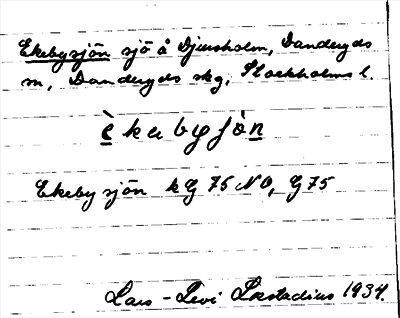 Ekebysjön sjö å Djursholm, Danderyds
sn, Danderyds skg, Stockholms l.
è kabyſòn
Ekeby sjön kG 75 NO, G 75
Lars-Levi Læstadius 1934.